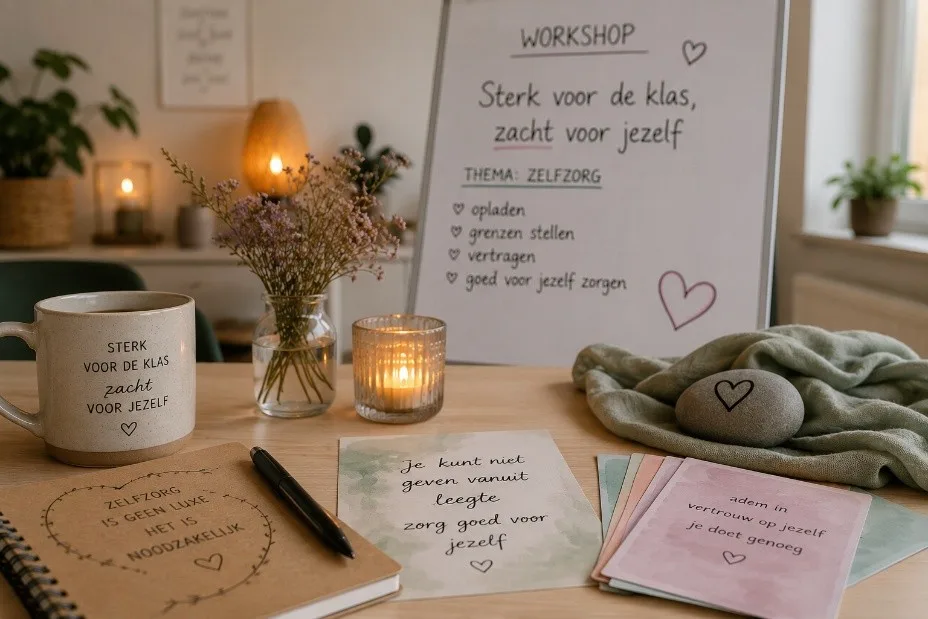 WORKSHOP
Sterk voor de klas,
zacht voor jezelf
THEMA: ZELFZORG
opladen
grenzen stellen
vertragen
goed voor jezelf zorgen
STERK
VOOR DE KLAS
zacht
VOOR JEZELF
ZELFZORG
IS GEEN LUXE
HET IS
NOODZAKELIJK
Je kunt niet
geven vanuit
leegte
zorg goed voor
jezelf
adem in
vertrouw op jezelf
je doet genoeg